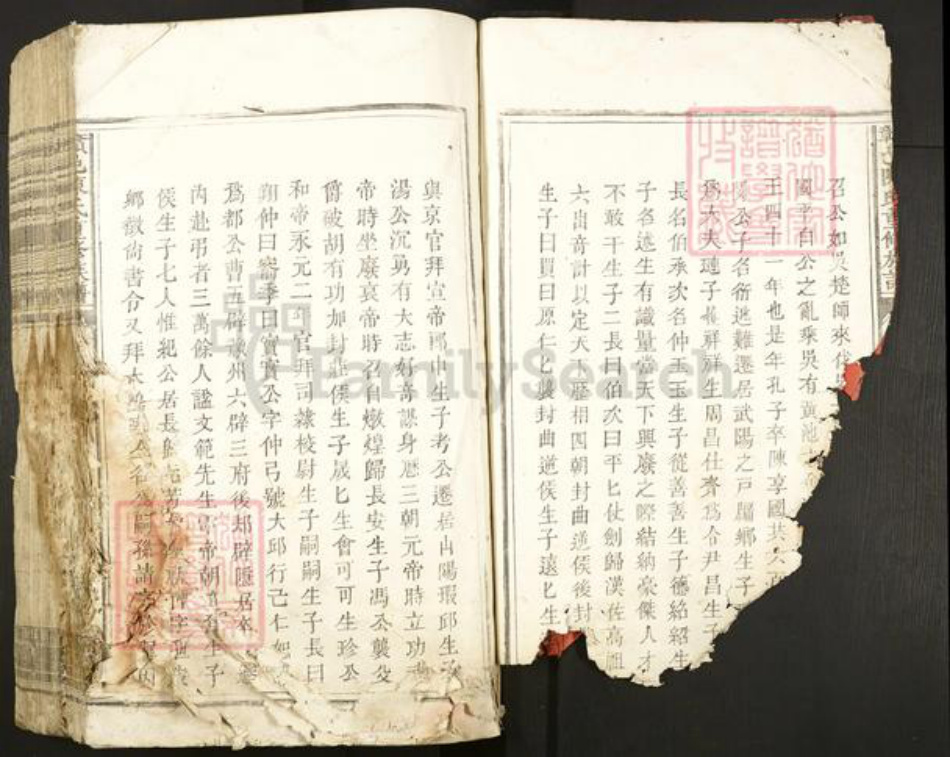 召公如吳楚師來伐
國辛白公之亂乘吳有黃池
王四十一年也是年孔子卒陳享國共
公子名衍避難遷居武陽之戸牖鄉生子
爲大夫璉子
祥生周昌仕齊爲令尹昌生子
長名伯承次名仲玉玉生子從善善生子德紹紹生
子名述生有識量當天下興廢之際結納豪傑人才
不敢干生子二長曰伯次曰平匕仗劍歸漢佐高祖
六出奇計以定天下歷相四朝封曲逆侯後封
生子曰買曰原仁匕襲封曲逆侯生子遠匕生
與京官拜宣帝郎中生子考公遷居山陽瑕邱生子
湯公沉勇有大志好奇謀身歷三朝元帝時立功
帝時坐廢哀帝時召自燉煌歸長安生子馮公襲父
爵破胡有功加封
侯生子晟匕生會可可生珍公
和帝永元二年官拜司隸校尉生子嗣嗣生子長曰
翔仲曰
季曰寔寔公字仲弓號大邱行己仁如
爲都公曹五辟豫州六辟三府後
辟
居
內赴弔者三萬餘人諡文範先生
帝朝
生子
侯生子七人惟紀公居長
字
鄉徵尚書令又拜大鴻
公
FamilySearch